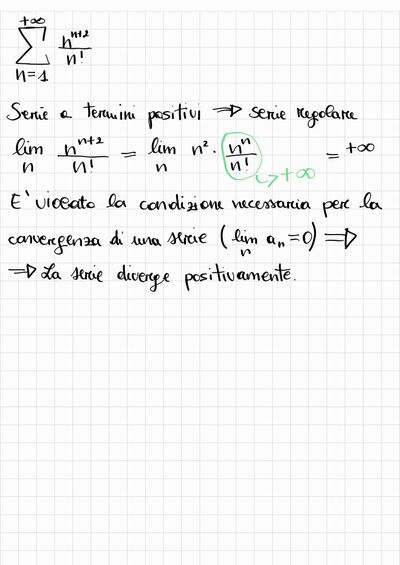 +∞
∑ n^{n+2}/n!
n=1
Serie a termini positivi ⇒ serie regolare
lim_n n^{n+2}/n! = lim_n n² · n^n/n! = +∞
→ +∞
E' violato la condizione necessaria per la
convergenza di una serie (lim_n a_n = 0) ⇒
⇒ La serie diverge positivamente.